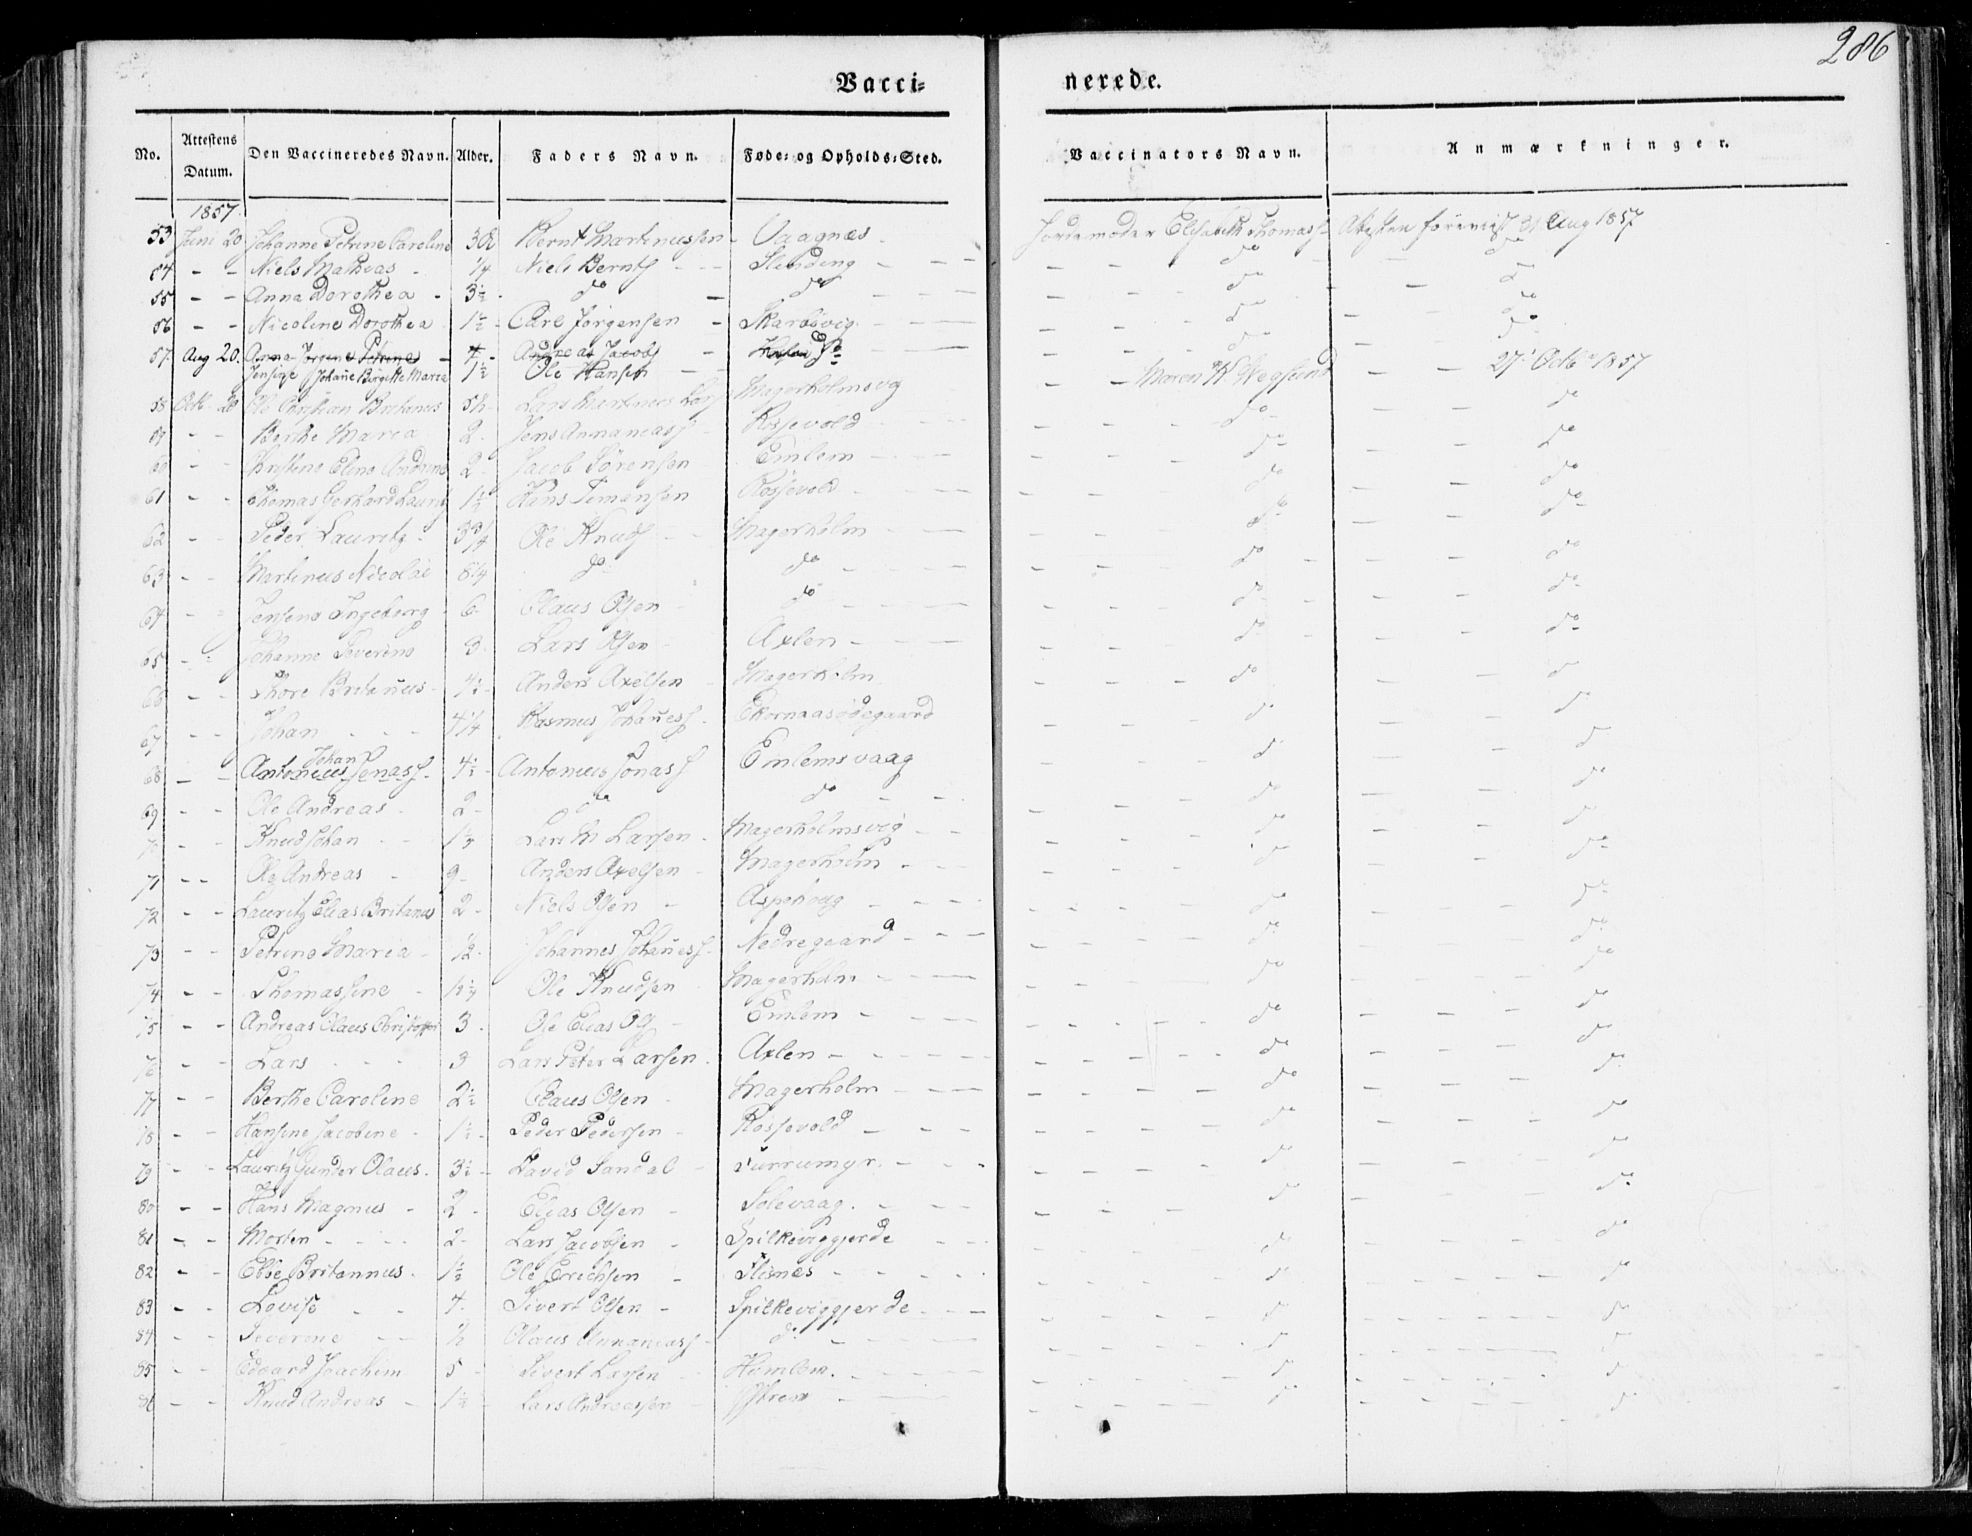 286
Vacci= nerede.
No. Attestens Datum. Den Vaccineredes Navn. Alder. Faders Navn. Føde= og Opholds=Sted. Vaccinators Navn. Anmærkninger.
1857.
53 Juni 20 Johanne Petrine Caroline Bernt Martinussen - Vaagnæs - Jordemoder Elisabeth Thomass Attesten foreviist 31 Aug 1857
54 - - Niels Mathias - 1/4 Niels Bernts - - - - - do do
55 - - Anna Dorothea - 3½ - do - do - - - - - - do do
56 - - Nicoline Dorothea 1½ - Carl Jørgensen - Skarbøvig - - - - - do do
57 Aug 20. Anna Jørgine Petrine - 4 - Andreas Jacobs - do do do
Jensine Johañe Birgitte Maria 1½ Ole Hansen - - Magerholmsvig - - Maren K. Wegsund - - 27 Octb 1857
58 Octb 20 Ole Christian Britanus 5½ - Lars Martinus Lars do do
59 - - Berthe Maria 2 - Jens Annanias Rossevold - - - - do - do
60 - - Elina Andrine 2 - Jacob Sørensen Emlem - - - - - do - do
61 - - Thomas Gerhard Lauritz 1½ Hans Simensen Rossevold - - - - do do
62 - - Peder Lauritz - 3¾ Ole Knuds - - Magerholm - - - - - do do
63 - - Martinus Nicolai 6¼ do - do - - - - - do do
64 - - Jensine Ingeborg 6 - Claus Olsen - do - - - - - do do
65 - - Johanne Severine 3 - Lars Olsen - Axlen - - - - - do do
66 - - Thore Britañus - 4½ - Anders Axelsen - Magerholm - - - do - do
67 - - Johan - - - 4¼ Rasmus Johañess. Ekornaasødegaard - - - do do
68 - - Antonius Johan Jonass. 4½ - Antonius Jonass Emlemsvaag - - - do do
69 - - Ole Andreas - 2 - do do - - - - - do do
70 - - Knud Johan - - 1¼ Lars M Larsen - Magerholmsvig - - - - - do do
71 - - Ole Andreas - 9 - Anders Axelsen - Magerholm - - - - do do
72 - - Lauritz Elias Britanus 2 - Niels Olsen - Aspehoug - - - - - - do do
73 - - Petrine Maria - ½ - Johannes Johañess. Nedregaard - - - - - - do do
74 - - Thomassine - Ole Knudsen Magerholm - - - - - - do do
75 - - Andreas Olaus Christoffer 3 - Ole Elias Ols - Emlem - - - - - - do do
76 - - Lars - - - 3 Lars Peter Larsen. Axlen - - - - - - do do
77 - - Berthe Caroline 2½ Claus Olsen - Magerholm - - - - - - do do
78 - - Hansine Jacobine - 1½ - Peder Pedersen - Rossevold - - - - - - do do
79 - - Lauritz Gunder Olaus. 3½ - David Sandal - Furrumyr. - - - - - - do do
80 - - Hans Magnus - 2 - Elias Olsen - Solevaag. - - - - - - do do
81 - - Morten - - - 2 - Lars Jacobsen - Spilkeviggjerde - - - - do do
82 - - Ebbe Britannus. 1½ Ole Erichsen - Flisnes - - - - - - do do
83 - - Lovise - - 4. Sivert Olsen - Spilkeviggjerde - - - - - do do
84 - - Severine - - ½ Olaus Annaniass - do - - - - - do do
85 - - Edvard Joachim 5 - Sivert Larsen - Humlem. - - - - - do do
86 - - Knud Andreas - 1½ - Lars Andreassen - - - - - - do do